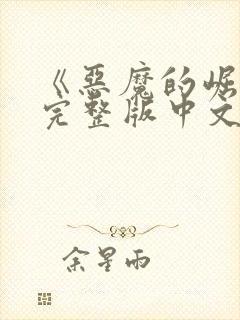 《惡魔的崛
完整版中文
余星雨